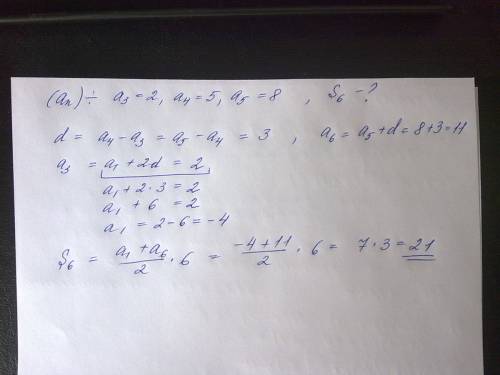 (aₙ) ÷ a₃ = 2, a₄ = 5, a₅ = 8 , S₆ - ?
d = a₄ - a₃ = a₅ - a₄ = 3 , a₆ = a₅ + d = 8 + 3 = 11
a₃ = a₁ + 2d = 2
a₁ + 2 · 3 = 2
a₁ + 6 = 2
a₁ = 2 - 6 = -4
S₆ = (a₁ + a₆)/2 · 6 = (-4 + 11)/2 · 6 = 7 · 3 = 21